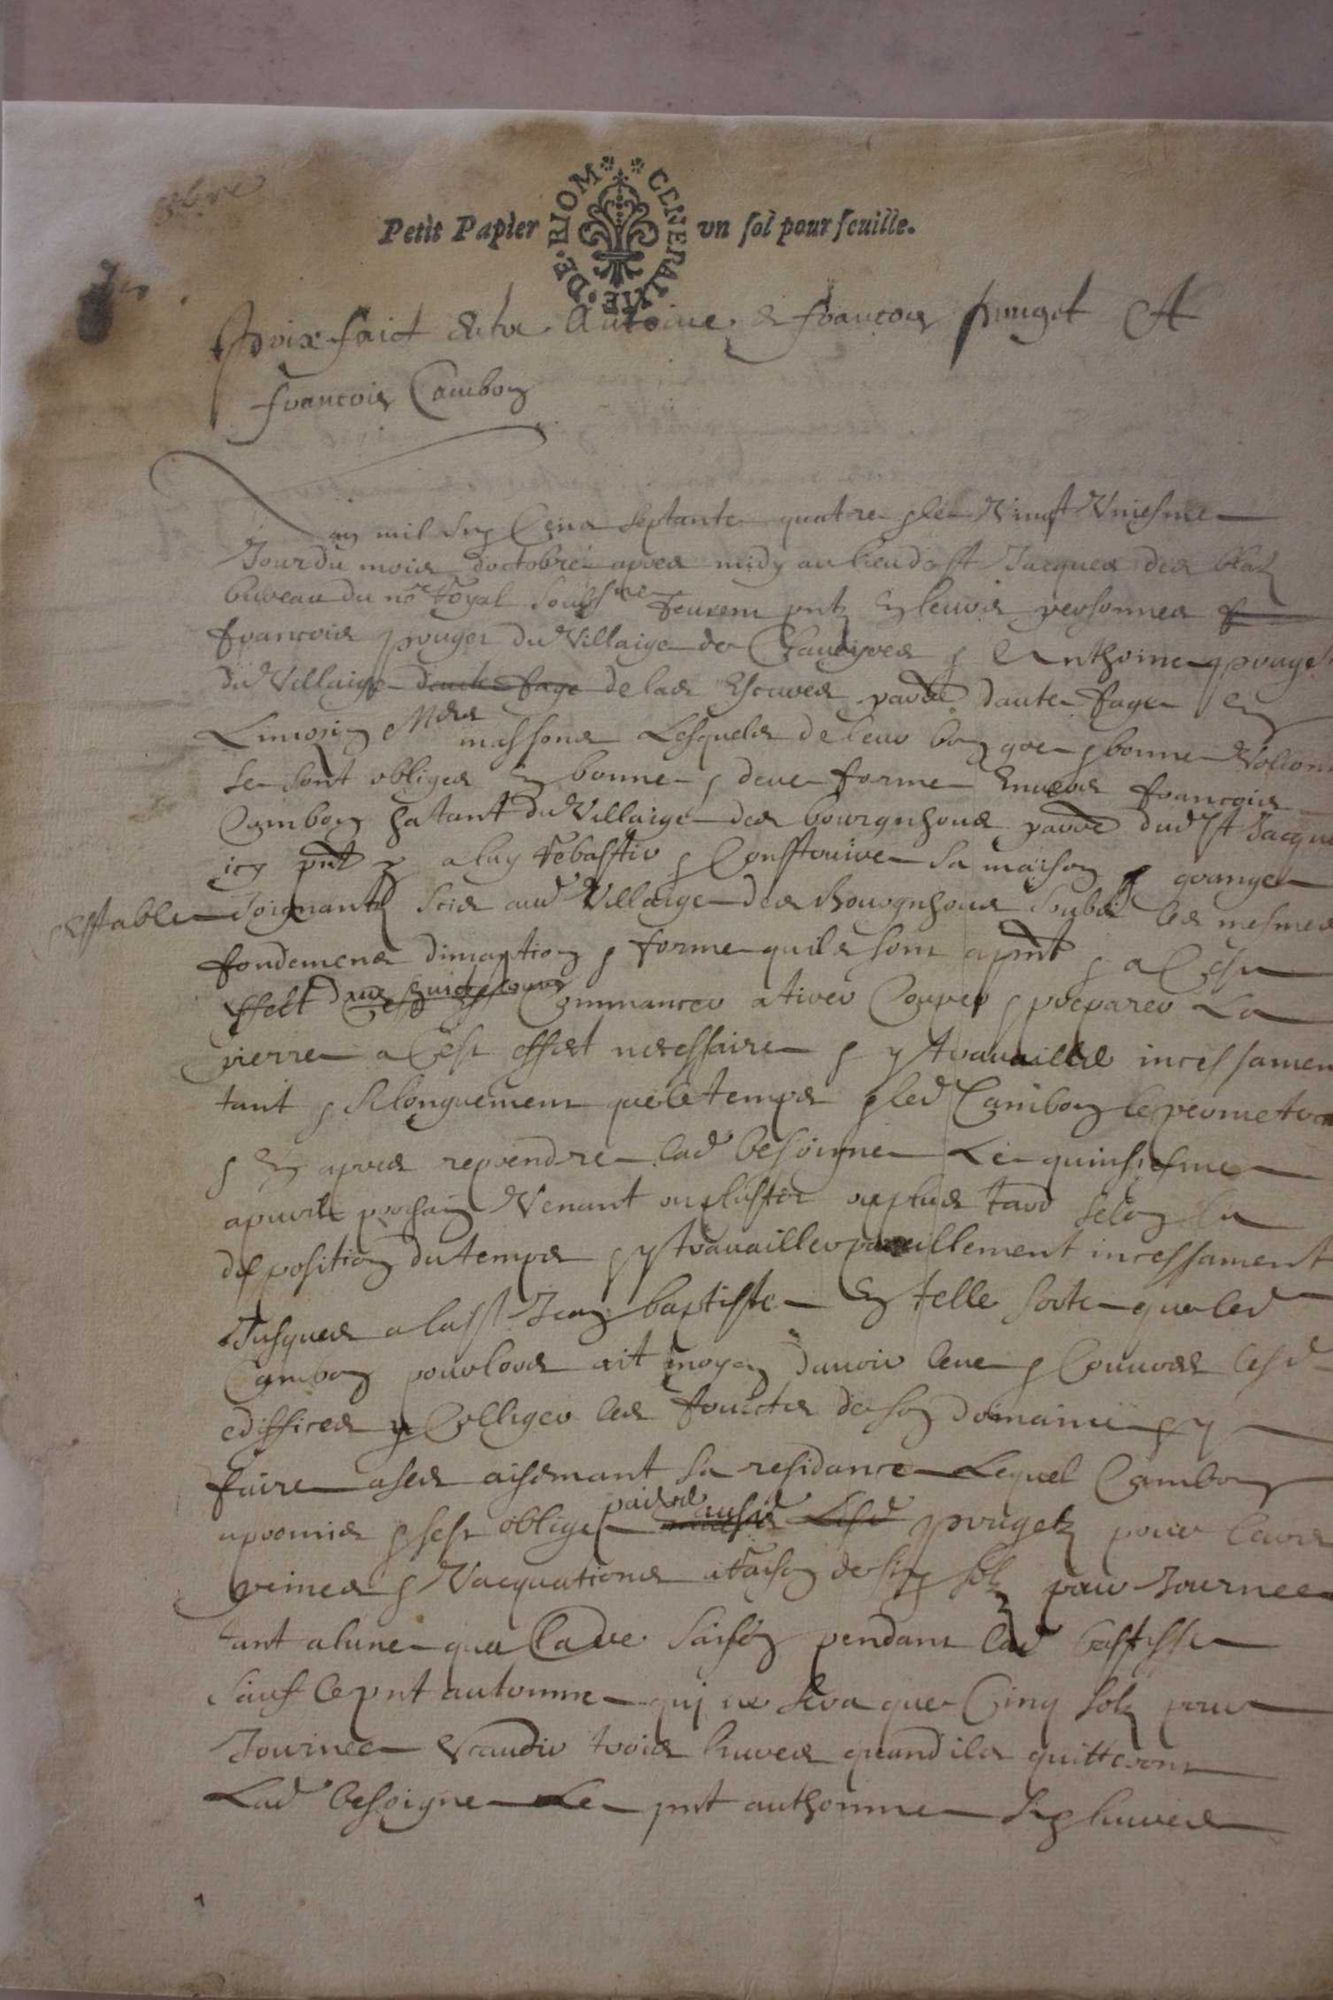 Petit Papier GENERALITE DE RIOM un sol pour feuille.
Prix faict entre Antoine & francois pouget Et
francois Cambon
L'an mil six Cens septante quatre & le Vingt Uniesme
Jour du mois doctobre apres midy au lieu de st Jacques des blatz
bureau du nore Royal soubsne feurent pntz En leurs personnes
francois pouget du Villaige de & Anthoine pouget
du Villaige dautefage de las parre dautefage En
Limozin Mers massons Lesquels de leur bon gre & bonne Volonte
se sont obliges En bonne & deue forme Envers francois
Cambon hatant du Villaige des bourgnhous parre dud St Jacques
icy pnt a luy rebastir & Construire sa maison & grange
& estable Joignantz scis aud Villaige des Bourgnhous soubz les mesmes
fondemens dimantion & forme quils sont a pnt & a Cest
effect dans huict jours Commancer a tirer Couper & preparer La
pierre a Cest effect necessaire & y travailler incessamen
tant & si longuement que le temps & led Cambon le permetra
& En apres reprendre lad besoigne Le quinsiesme
apuril prochain Venant ou plustot ou plus tard selon la
disposition du temps & y travailler pareillement incessament
Jusques a la st Jean baptiste En telle sorte que led
Cambon pour lors ait moyen davoir leue & Couvers lesd
ediffices & Colliger les fruictz de son domaine & y
faire a ses aisemant sa residance Lequel Cambon
a promis & sest oblige paier ausd pougetz pour leurs
peines & Vacquations a raison de six solz pour Journee
tant a lune qua lautre saison pendant lad bastisse
sauf le pnt automne quy ne sera que Cinq solz pour
Journee & trois livres quand ils quitteront
Lad besoigne Le pnt authonne six livres